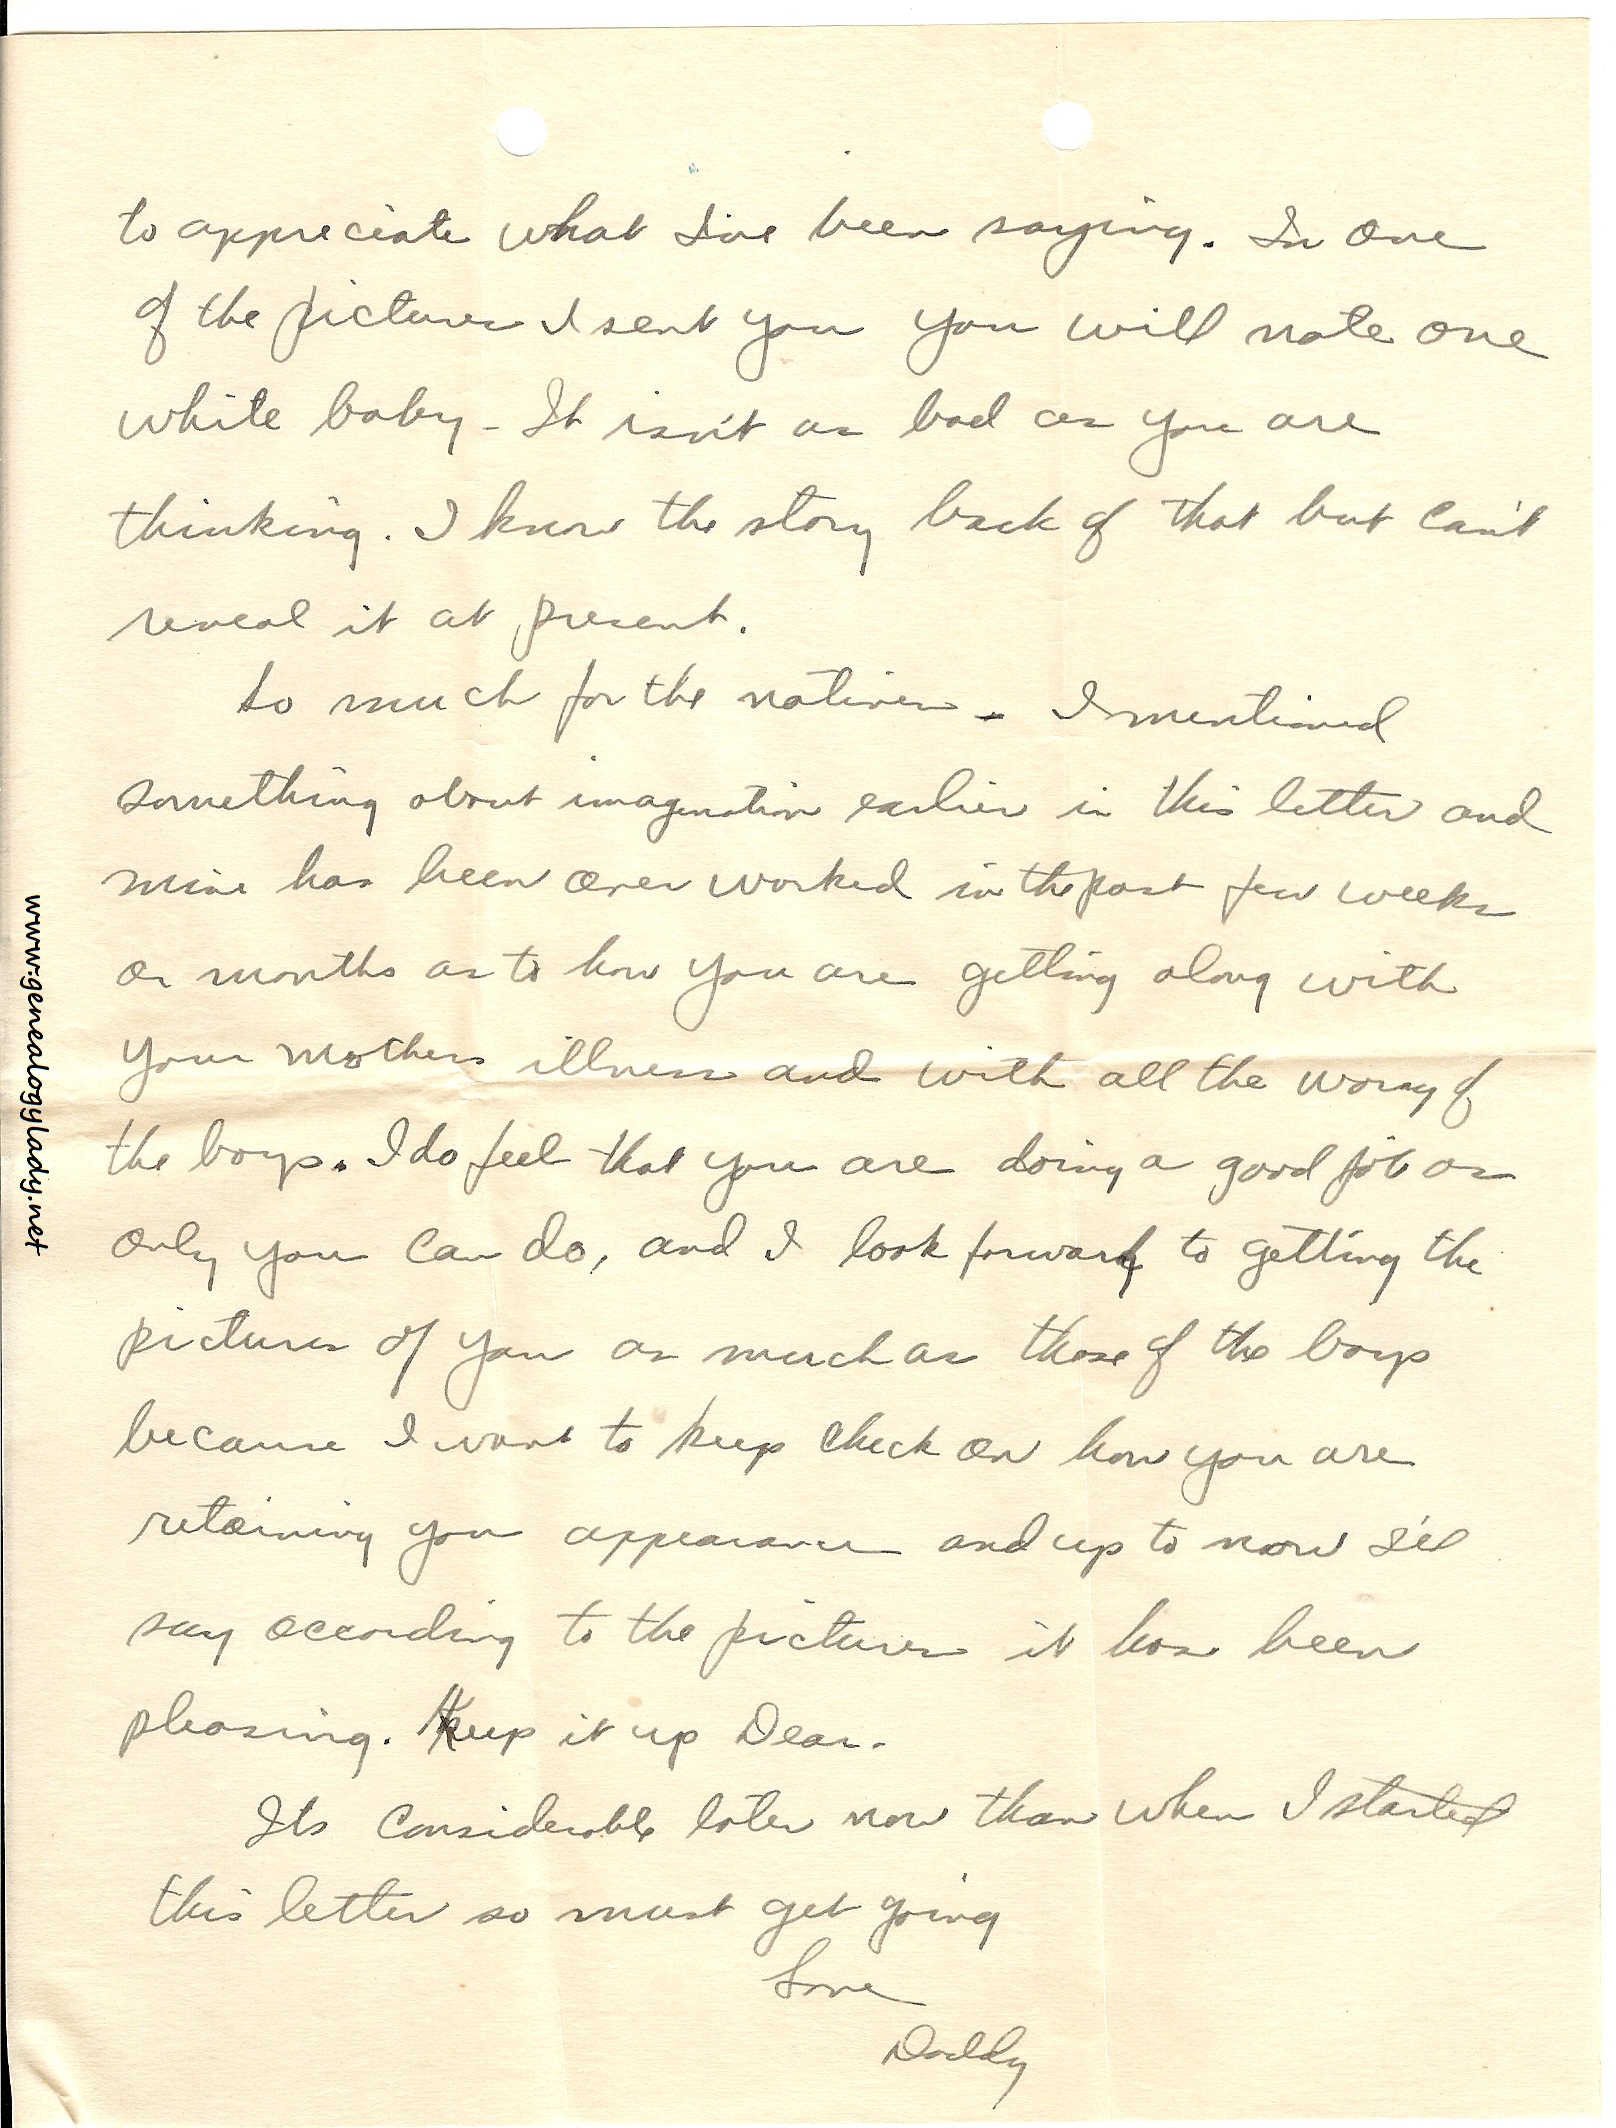 to appreciate what I've been saying. In one
of the pictures I sent you you will note one
white baby - It isn't as bad as you are
thinking. I know the story back of that but can't
reveal it at present.
So much for the natives - I mentioned
something about imagination earlier in this letter and
mine has been over worked in the past few weeks
or months as to how you are getting along with
your mothers illness and with all the worry of
the boys. I do feel that you are doing a good job as
only you can do, and I look forward to getting the
pictures of you as much as those of the boys
because I want to keep check on how you are
retaining your appearance and up to now I'll
say according to the pictures it has been
pleasing. Keep it up Dear.
Its considerable later now than when I started
this letter so must get going
Love
Daddy
www.genealogylady.net